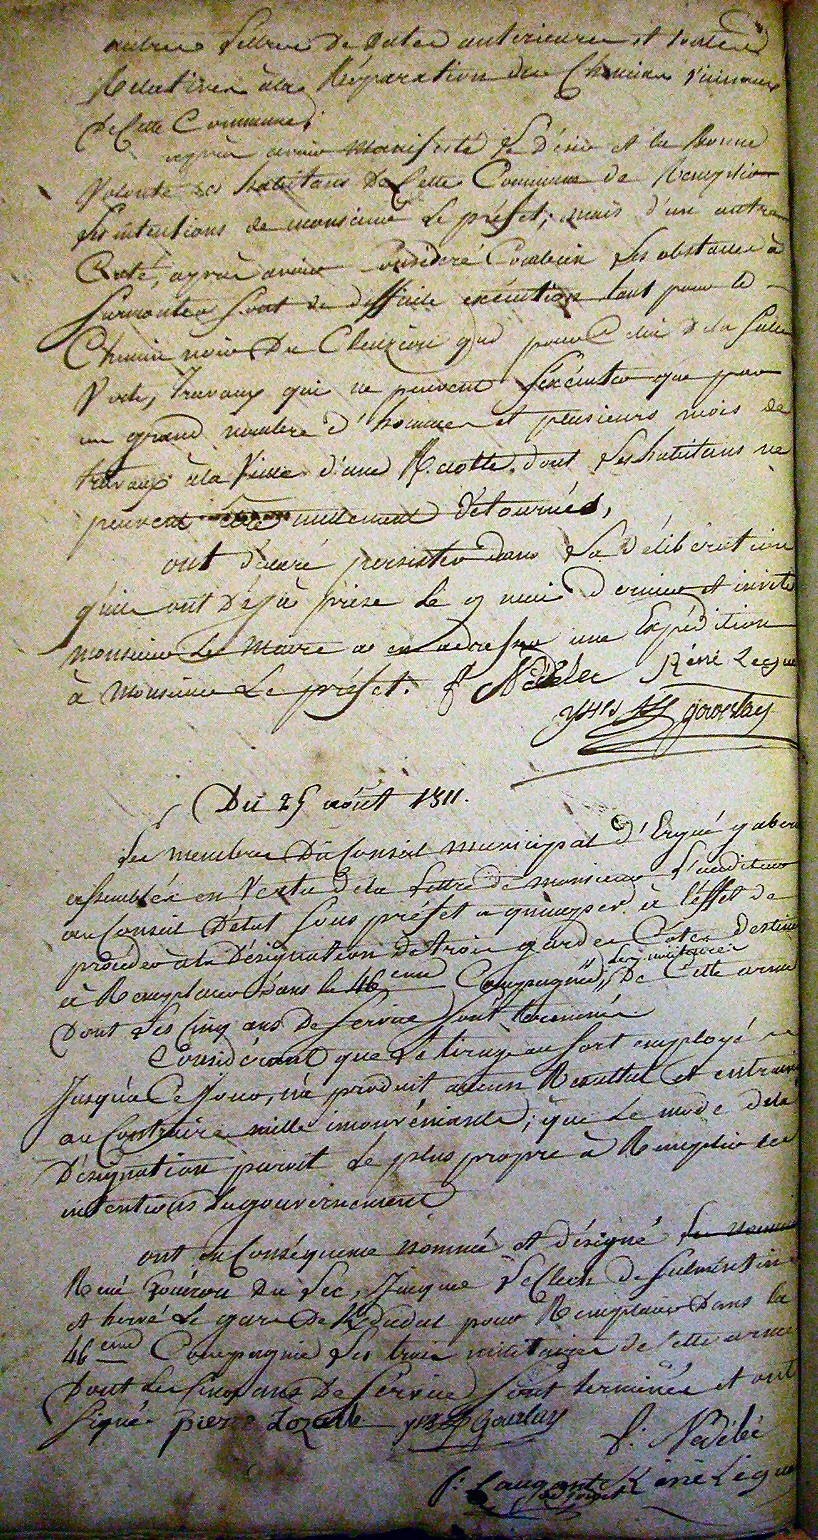 autres lettres de dates antérieures et toutes
Relatives à la Réparation des Chemins vicinaux
De Cette Commune,
après avoir manifesté le Désir et la Bonne
Volonté des habitans De Cette Commune de Remplir
les intentions de monsieur le préfet; mais d'un autre
Coté, après avoir considéré Combien les obstacles à
surmonter sont de difficile exécution tant pour le
Chemin noir Du Cleuziou que pour Celui De la Salle
Verte, travaux qui ne peuvent s'exécuter que par
un grand nombre d'hommes et plusieurs mois de
travaux à la Veille d'une Récolte dont les habitans ne
peuvent être nullement Détournés,
ont déclaré persister dans la délibération
qu'ils ont Déjà prise le 9 mai Dernier et invité
monsieur Le Maire a en adresser une Expédition
à Monsieur Le préfet. f Nédélec René Lequ
yves gourlay
Du 25 août 1811.
Les membres Du Conseil municipal d'Ergué gaberic
assemblés en Vertu De la Lettre de monsieur l'auditeur
au Conseil D'etat Sous préfet a quimper à l'éffet de
procéder à la Désignation De trois gardes Cotes Destinés
à Remplacer Dans la 46eme Compagnie, les militaires De Cette arme
Dont les Cinq ans De Service sont terminés
Considérant que le tirage au sort employé
Jusqu'à Ce Jour, n'a produit aucun Résultat et entrainé
au Contraire mille inconvéniants; que le mode de la
Désignation paroit le plus propre à Remplir les
intentions du gouvernement
ont en Conséquence nommé et désigné les nommés
René du Lec, Jacques Le Clech De
et hervé Le gars De Kdudal pour Remplacer Dans la
46eme Compagnie les trois militaires de Cette arme
Dont les Cinq ans De Service sont terminés et ont
Signé pierre Lozach yves gourlay
f. Nédélec
f: Laugante René Lequ